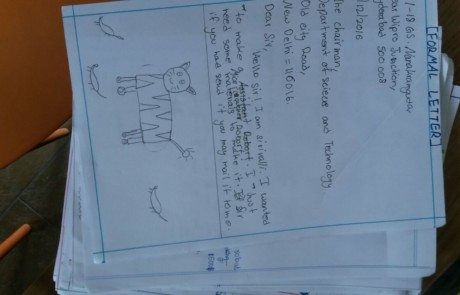 [FORMAL LETTER]
1-18 GS Narahimgudar
Wipro Junction,
500008
/12/2016
The chairman,
Department of science and Technology
Old city Road,
New Delhi = 110016.
Dear Sir,
Hello sir! I am sirivalli. I wanted
to make a Robort. I just
need some materials to make it. Sir
if you had send it you may mail it to me.